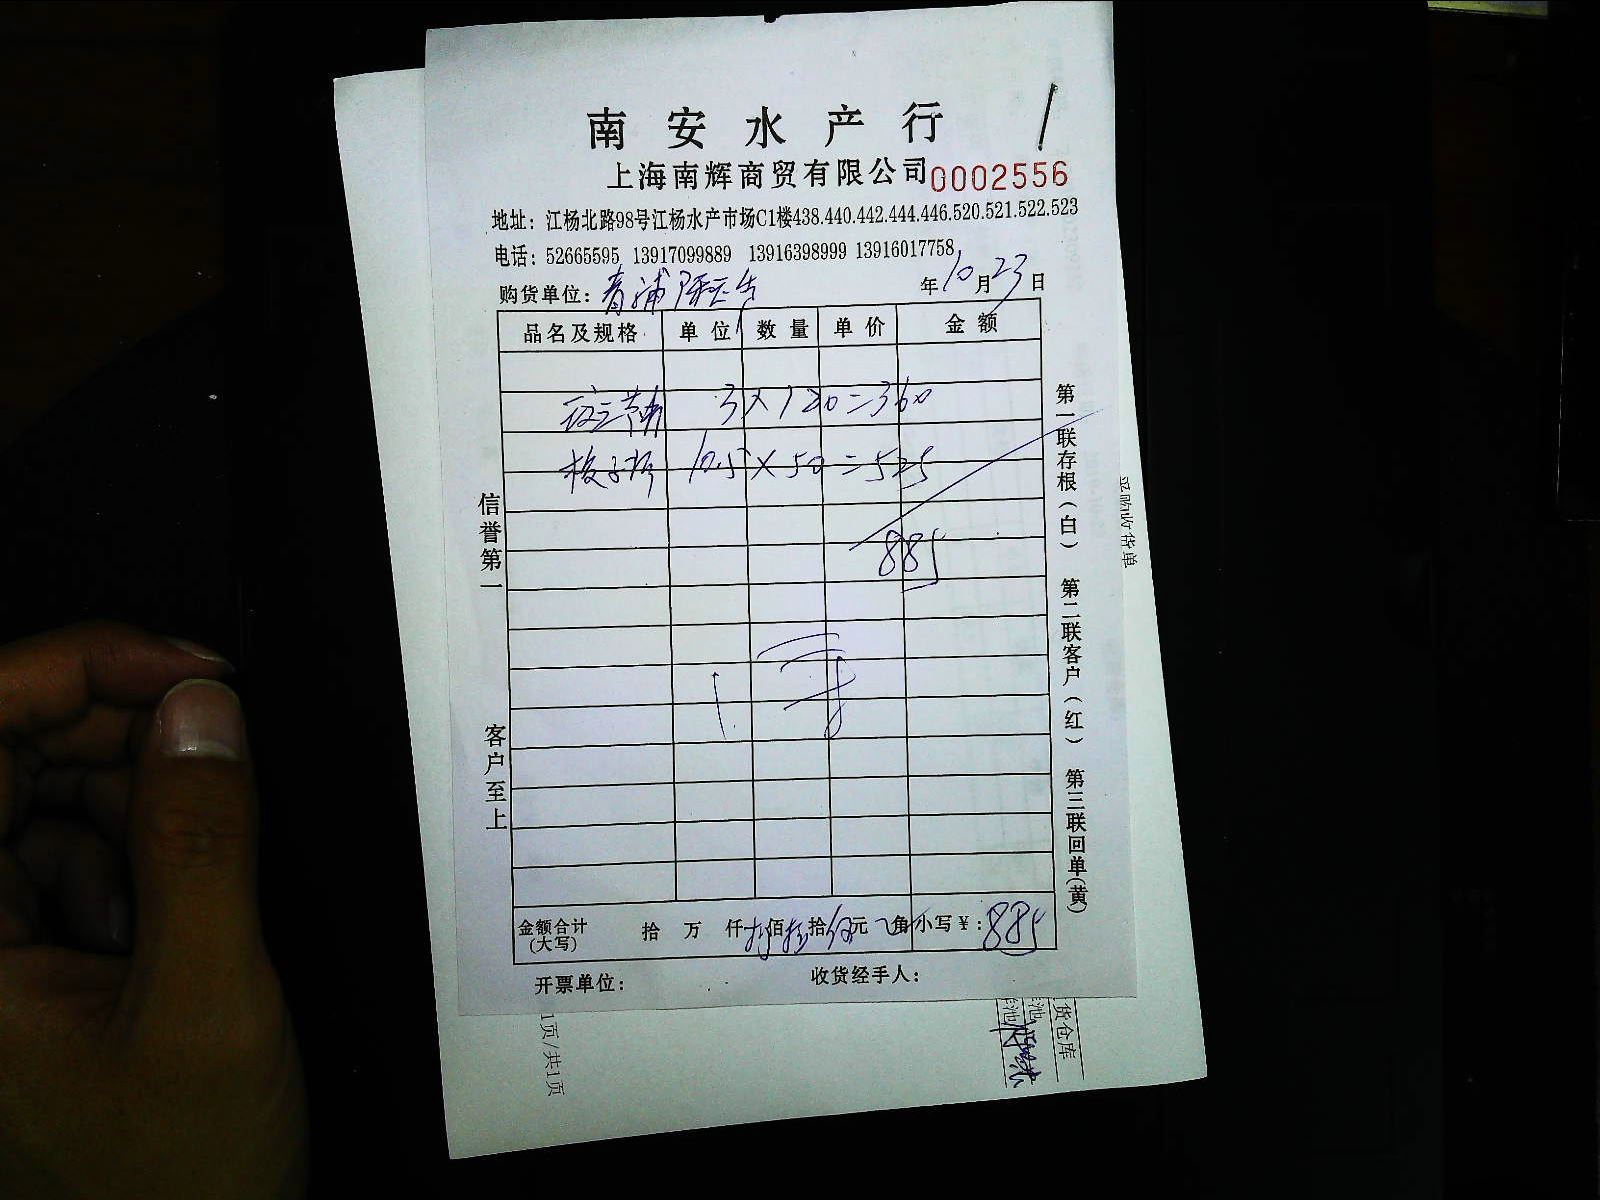 南安水产行
上海南辉商贸有限公司 0002556
地址：江杨北路98号江杨水产市场C1楼438.440.442.444.446.520.521.522.523
电话：52665595 13917099889 13916398999 13916017758
购货单位：青浦 年10月23日
品名及规格 单位 数量 单价 金额
3×120=360
10.5×50=525
885
金额合计(大写) 拾 万 仟 捌佰捌拾伍元 角 小写￥：885
开票单位： 收货经手人：
信誉第一 客户至上
第一联存根（白） 第二联客户（红） 第三联回单(黄)
采购收货单
货仓库
1页/共1页